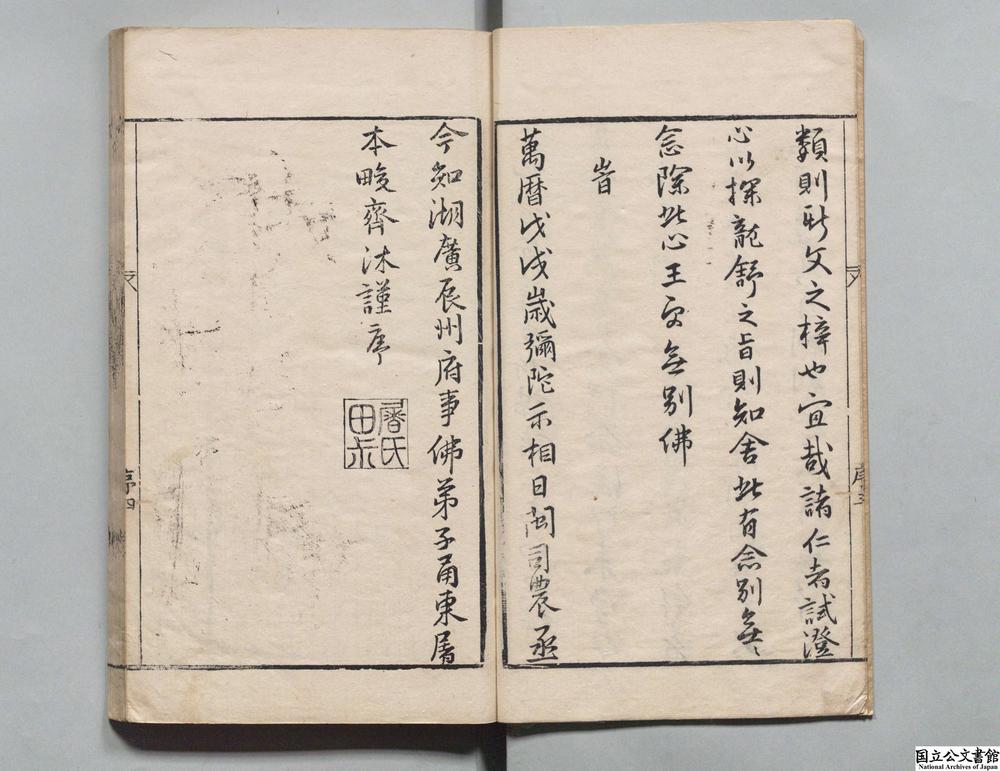 類則斯文之梓也宜哉諸仁者試澄
心以探龍舒之旨則知舍此有念別無〻
念除此心王更無別佛
旹
萬曆戊戌歲彌陀示相日前司農丞
今知湖廣辰州府事佛弟子甬東屠
本畯齊沐謹序
屠氏
田叔
序四
国立公文書館
National Archives of Japan